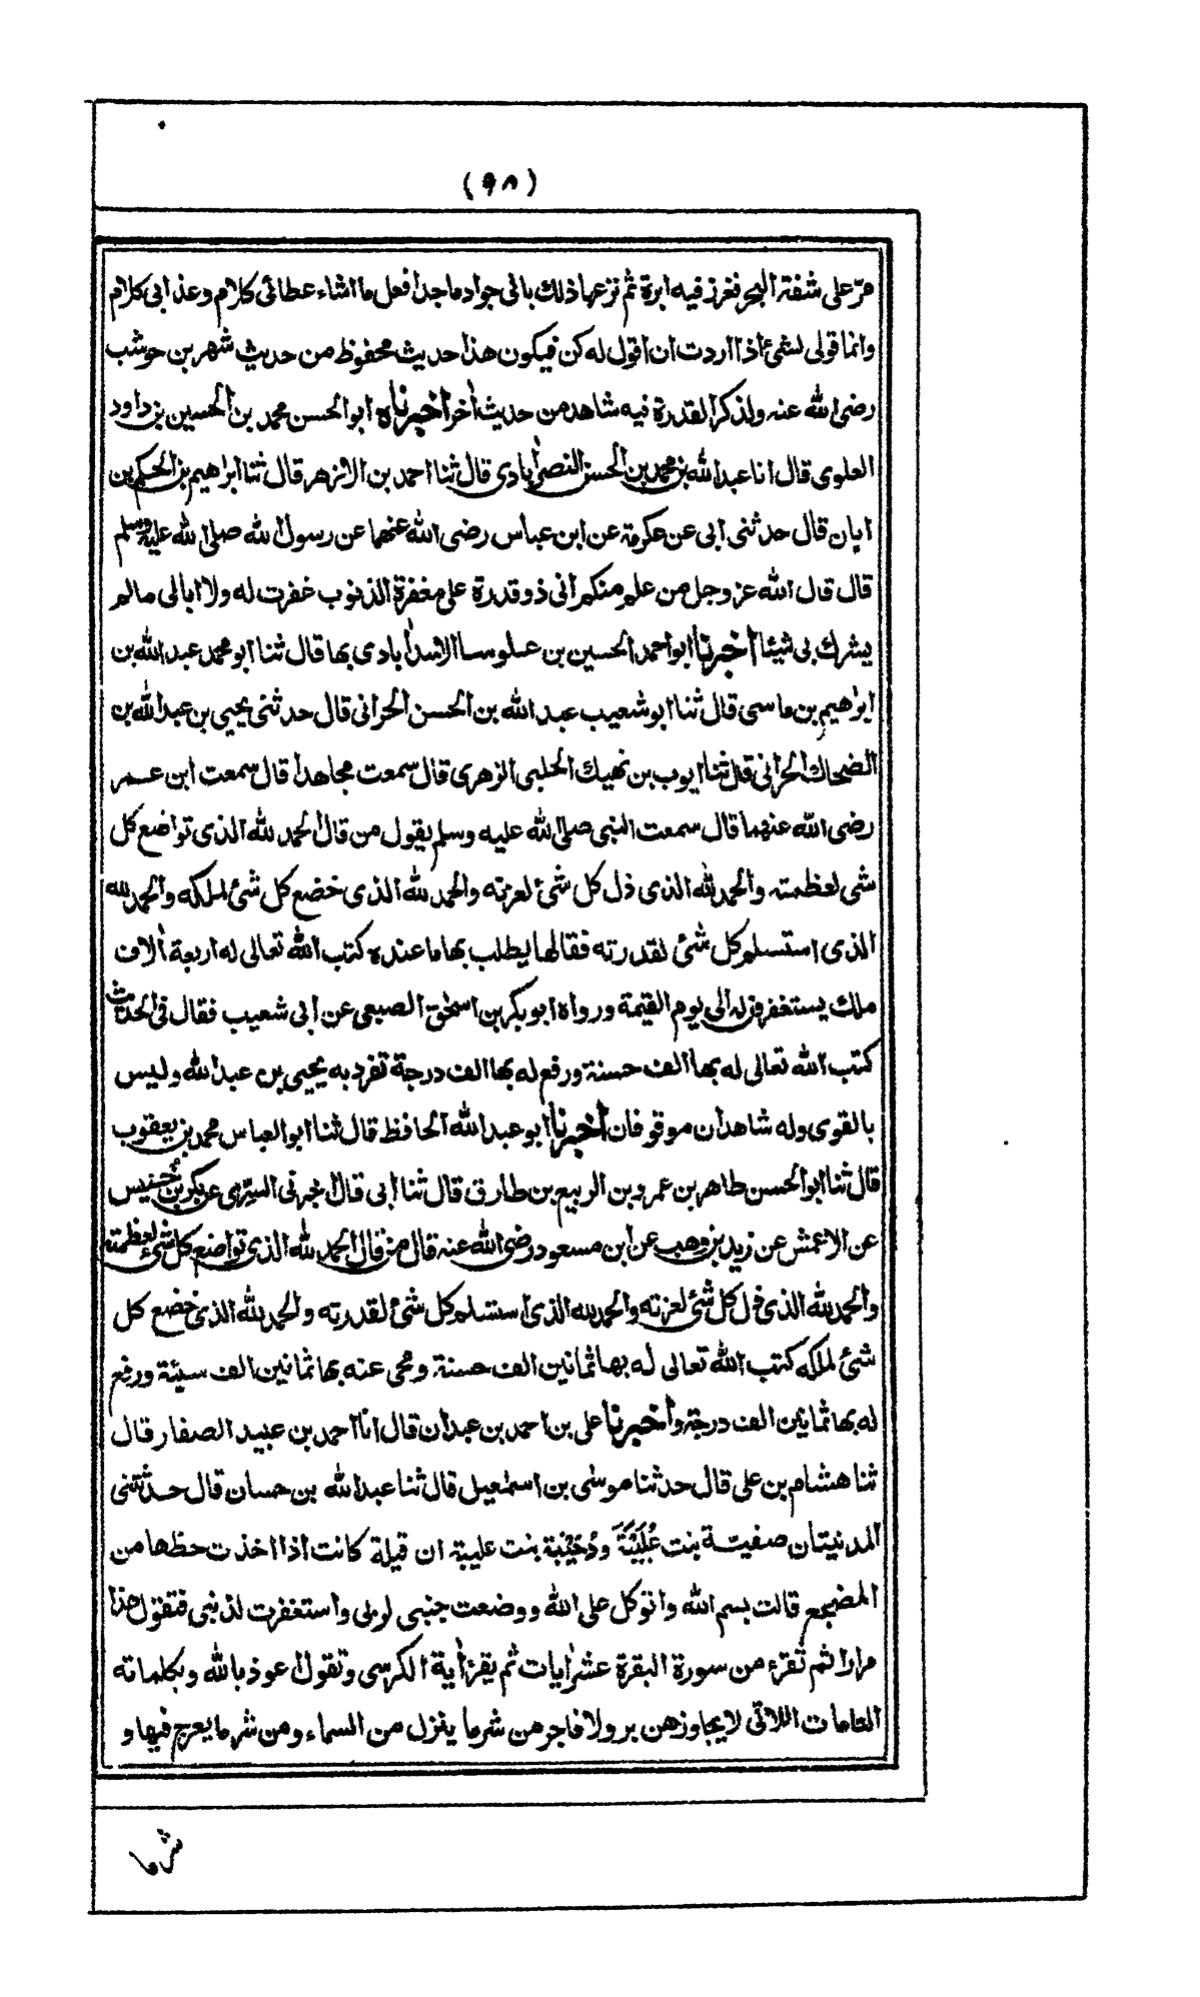 (٩٨)
مرّ على شفته البحر فغرز فيه ابرة ثم نزعها ذلك بانى جواد ماجد افعل ما اشاء عطائى كلام وعذابى كلام
وانما قولى لشئ اذا اردت ان اقول له كن فيكون هذا حديث محفوظ من حديث شهر بن حوشب
رضى الله عنه ولذكر القدرة فيه شاهد من حديث اٰخر اخبرناه ابو الحسن محمد بن الحسين بن داود
العلوى قال انا عبد الله بن محمد بن الحسن النصرٰابادى قال ثنا احمد بن الازهر قال ثنا ابراهيم بن الحكم بن
ابان قال حدثنى ابى عن عكرمة عن ابن عباس رضى الله عنهما عن رسول الله صلى الله عليه وسلم
قال قال الله عز وجل من علم منكم انى ذو قدرة على مغفرة الذنوب غفرت له ولا ابالى مالم
يشرك بى شيئا اخبرنا ابو احمد الحسين بن علوسا الاسدٰابادى بها قال ثنا ابو محمد عبد الله بن
ابراهيم بن ماسى قال ثنا ابو شعيب عبد الله بن الحسن الحرانى قال حدثنى يحيى بن عبد الله بن
الضحاك الحرانى قال ثنا ايوب بن نهيك الحلبى الزهرى قال سمعت مجاهدا قال سمعت ابن عمر
رضى الله عنهما قال سمعت النبى صلى الله عليه وسلم يقول من قال الحمد لله الذى تواضع كل
شى لعظمته والحمد لله الذى ذل كل شئ لعزته والحمد لله الذى خضع كل شئ لملكه والحمد لله
الذى استسلم كل شئ لقدرته فقالها يطلب بها ما عنده كتب الله تعالى له اربعة اٰلاف
ملك يستغفرون له الى يوم القيمة ورواه ابو بكر بن اسحٰق الصبعى عن ابى شعيب فقال فى الحديث
كتب الله تعالى له بها الف حسنة ورفع له بها الف درجة تفرد به يحيى بن عبد الله وليس
بالقوى وله شاهدان موقوفان اخبرنا ابو عبد الله الحافظ قال ثنا ابو العباس محمد بن يعقوب
قال ثنا ابو الحسن طاهر بن عمرو بن الربيع بن طارق قال ثنا ابى قال اخبرنى السرّى عن بكر بن خُنيس
عن الاعمش عن زيد بن وهب عن ابن مسعود رضى الله عنه قال من قال الحمد لله الذى تواضع كل شئ لعظمته
والحمد لله الذى ذل كل شئ لعزته والحمد لله الذى استسلم كل شئ لقدرته والحمد لله الذى خضع كل
شئ لملكه كتب الله تعالى له بها ثمانين الف حسنة ومحى عنه بها ثمانين الف سيئة ورفع
له بها ثمانين الف درجة واخبرنا على بن احمد بن عبدان قال انا احمد بن عبيد الصفار قال
ثنا هشام بن على قال حدثنا موسٰى بن اسمٰعيل قال ثنا عبد الله بن حسان قال حدثتنى
المدنيتان صفيتة بنت عُلَيْبَةَ ودُحَيْبَة بنت عليبة ان قيلة كانت اذا اخذت حظها من
المضجع قالت بسم الله واتوكل على الله ووضعت جنبى لربى واستغفرت لذنبى فتقول هذا
مرارا ثم تقرء من سورة البقرة عشر اٰيات ثم يقرأ اٰية الكرسى وتقول اعوذ بالله وبكلماته
التامات اللاتى لا يجاوزهن بر ولا فاجر من شر ما ينزل من السماء ومن شر ما يعرج فيها و
شر ما